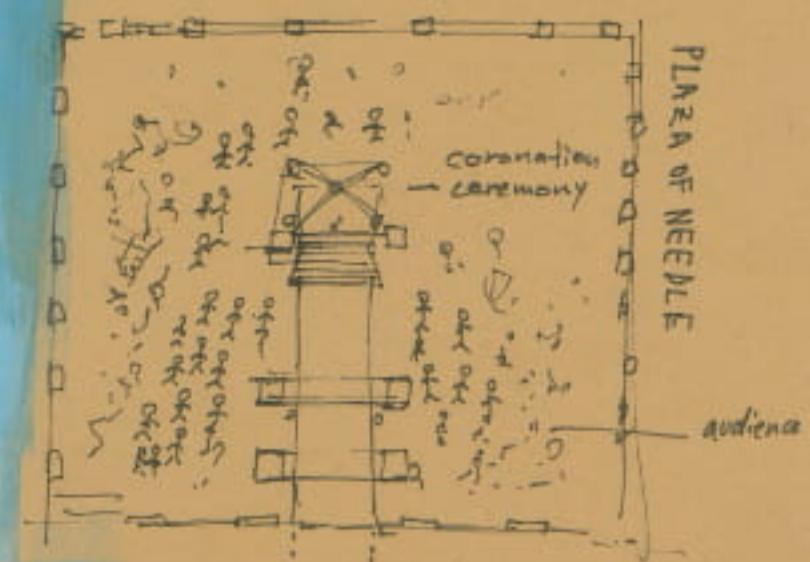 coronation
ceremony
PLAZA OF NEEDLE
audience